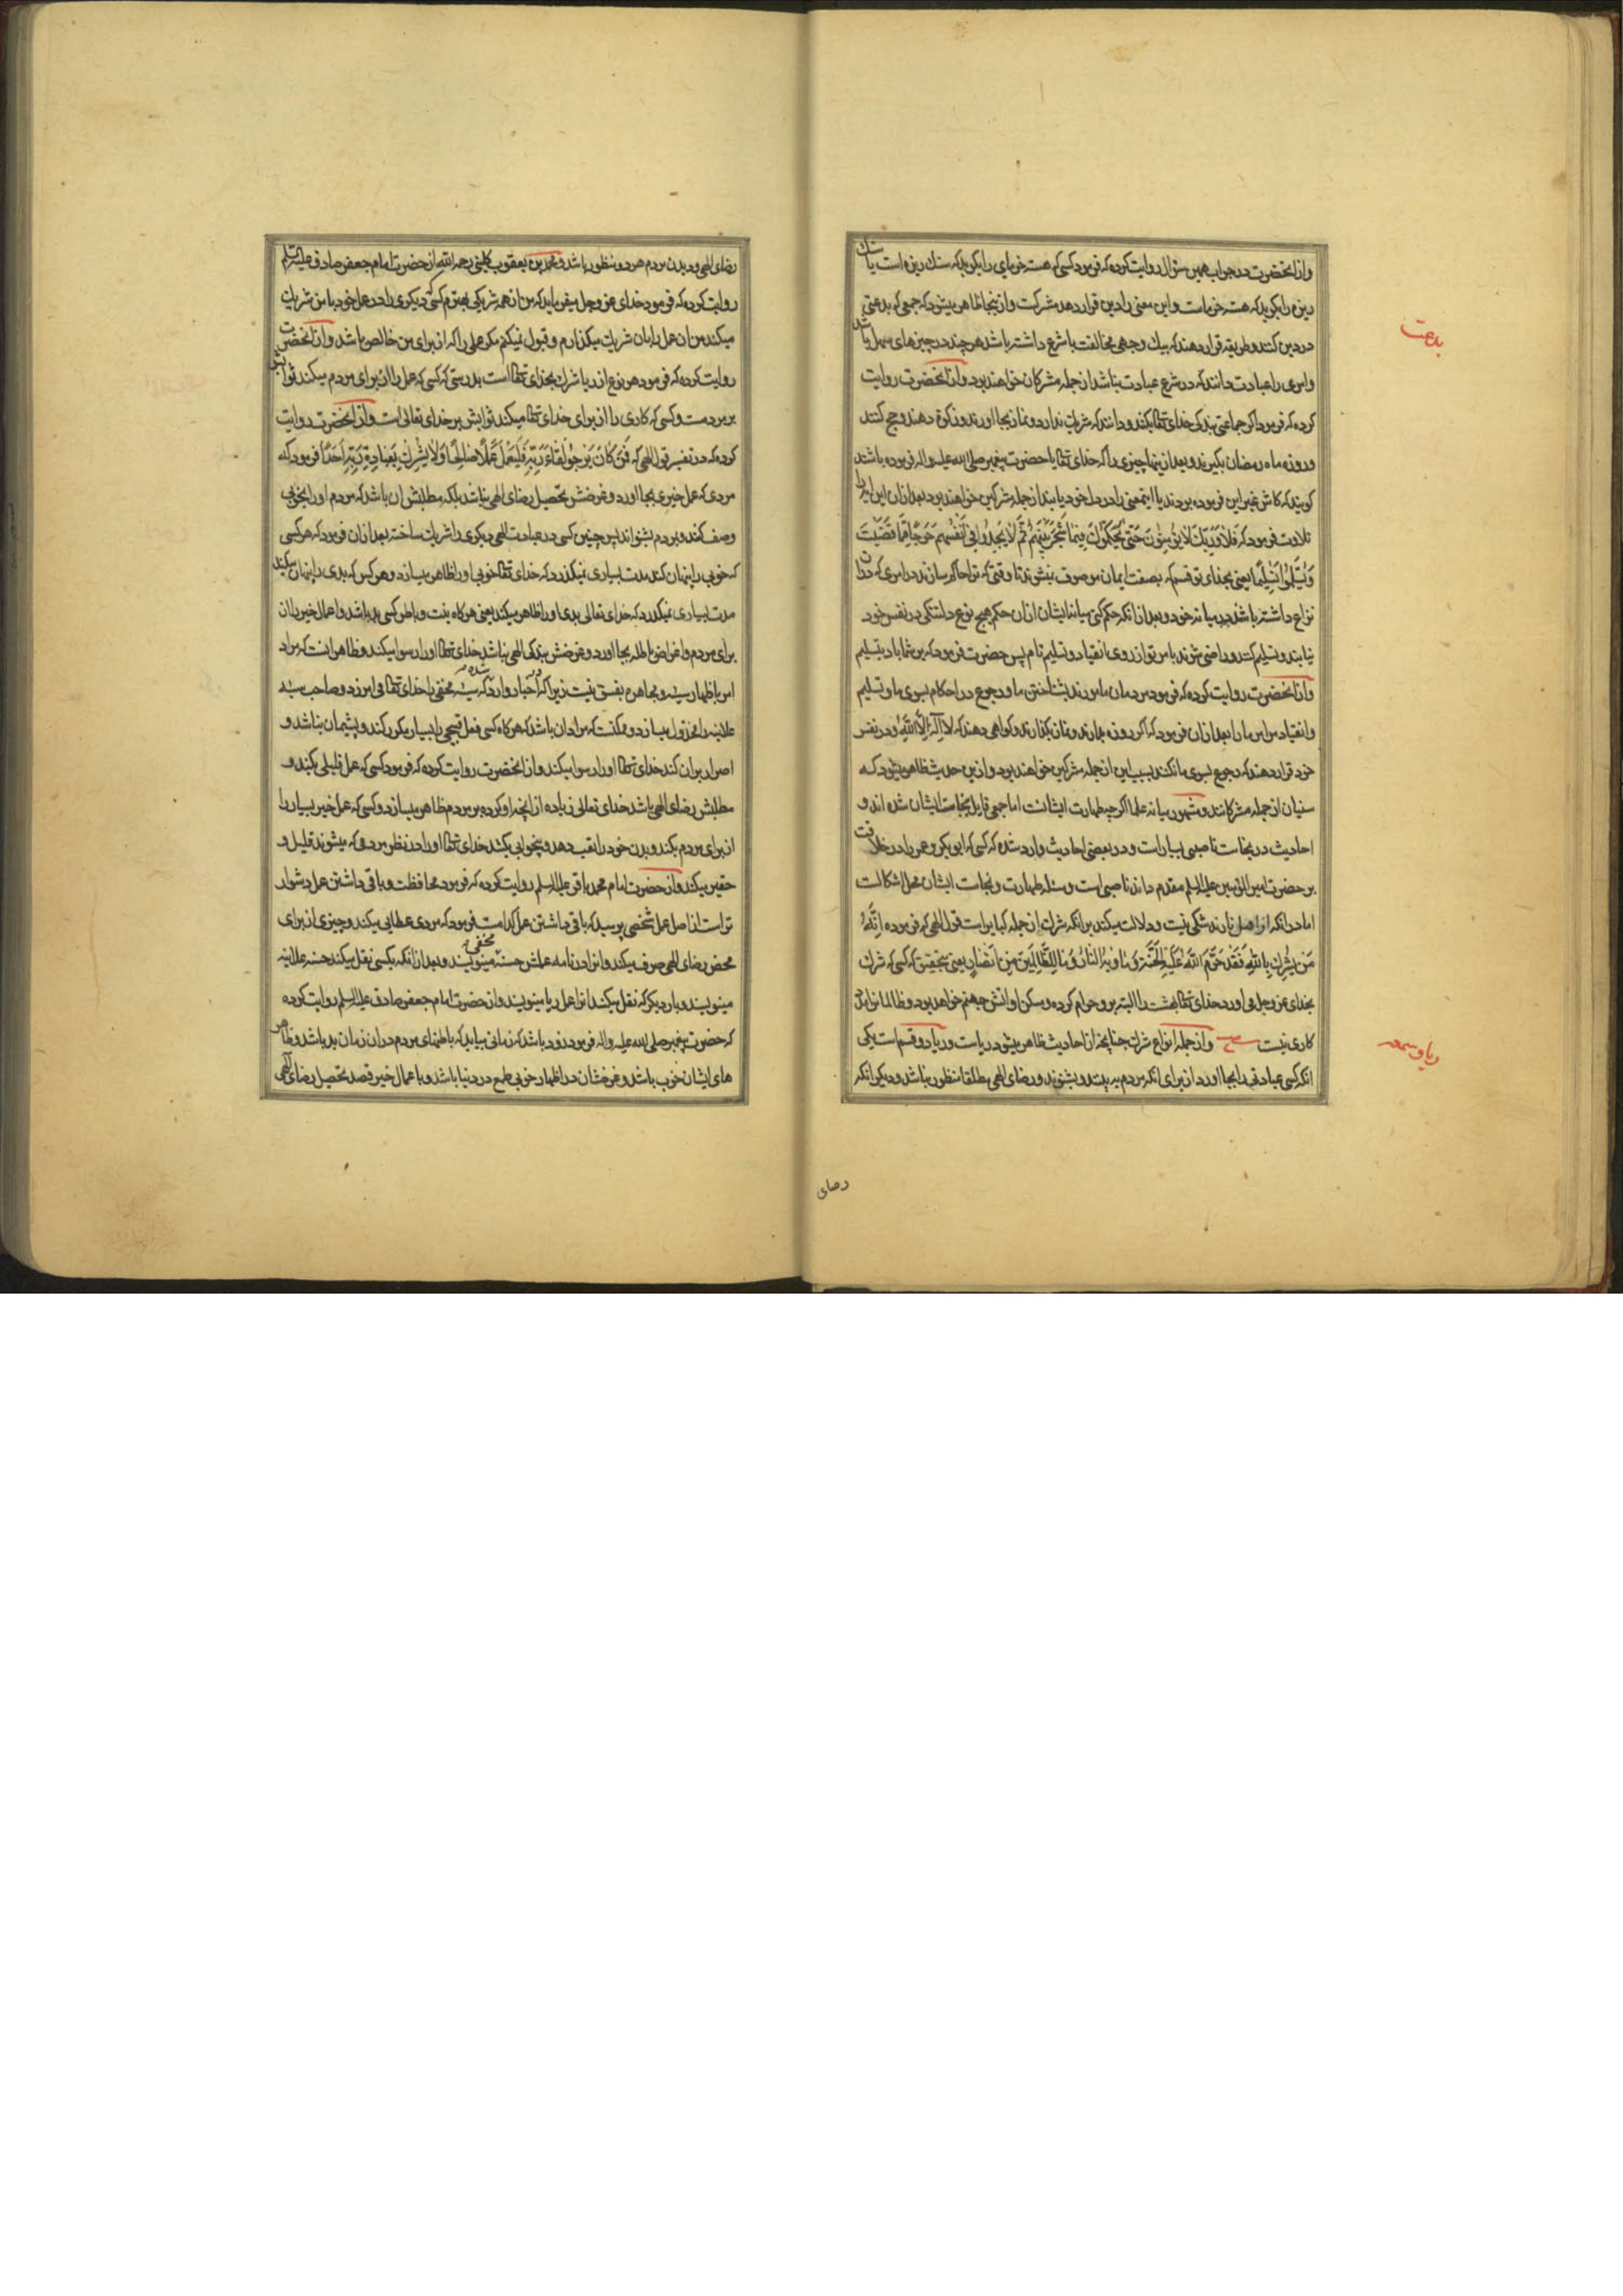 وازانحضرت در جواب همین سؤال روایت کرده که فرمود کسی که هسته خرمای را بکوید که سنك ریزه است یا سنك
ریزه را بکوید که هسته خرماست و این معنی را دین قرار دهد مشرکست و از ینجا ظاهر میشود که جمعی که بدعتی
در دین کنند و طریقه قرار دهند که بیك وجهی مخالفت با شرع داشته باشد هرچند در چیزهای سهل باشد
بدعت
وامری را عبادت دانند که در شرع عبادت نباشد از جمله مشرکان خواهند بود وازانحضرت روایت
کرده که فرمود اکر جماعتی بندکی خدای تعالی بکنند و دانند که شریك ندارد و نماز بجا اورند و زکوة دهند و حج کنند
و روزه ماه رمضان بکیرند و بعد از ینها چیزی را که خدای تعالی یا حضرت پیغمبر صلی الله علیه واله فرموده باشند
کویند که کاش غیر این فرموده بودند یا اینمعنی را در دل خود یابند از جمله مشرکین خواهند بود بعد ازان این ایه را
تلاوت فرمود که فَلَا وَرَبِّكَ لَا یُؤْمِنُونَ حَتّٰی یُحَکِّمُوكَ فِیمَا شَجَرَ بَیْنَهُمْ ثُمَّ لَا یَجِدُوا فِی اَنْفُسِهِمْ حَرَجًا مِمَّا قَضَیْتَ
وَیُسَلِّمُوا تَسْلِیمًا یعنی بخدای تو قسم که بصفت ایمان موصوف نمیشوند تا وقتی که ترا حاکم سازند در امری که دران
نزاع داشته باشند در میانه خود و بعد از انکه حکم کنی میانه ایشان ازان حکم هیچ نوع دلتنکی در نفس خود
نیابند و تسلیم کنند و راضی شوند بامر تو از روی انقیاد و تسلیم تام پس حضرت فرمود که بر شما باد بتسلیم
وازانحضرت روایت کرده که فرمود مردمان مامورند بشناختن ما و رجوع در احکام بسوی ما و تسلیم
و انقیاد مر امر ما را بعد ازان فرمود که اکر روزه بدارند و نماز بکذارند و کواهی دهند که لَا اِلٰهَ اِلَّا اللّٰهُ و در نفس
خود قرار دهند که رجوع بسوی ما نکنند بسبب این از جمله مشرکین خواهند بود و ازین حدیث ظاهر میشود که
سنیان از جمله مشرکانند و مشهور میانه علما اکرچه طهارت ایشانست اما جمعی قایل بنجاست ایشان شده اند و
احادیث در نجاست ناصبی بسیارست و در بعضی احادیث وارد شده که کسی که ابو بکر و عمر را در خلافت
بر حضرت امیر المؤمنین علیه السلم مقدم داند ناصبی است و مسئله طهارت و نجاست ایشان محل اشکالست
اما در انکه از اهل نارند شکی نیست و دلالت میکند بر انکه شرك از جمله کبایر است قول الهی که فرموده اِنَّهُ
مَنْ یُشْرِكْ بِاللّٰهِ فَقَدْ حَرَّمَ اللّٰهُ عَلَیْهِ الْجَنَّةَ وَمَاْوٰیهُ النَّارُ وَمَا لِلظَّالِمِینَ مِنْ اَنْصَارٍ یعنی بتحقیق که کسی که شرك
بخدای عز و جل می اورد خدای تعالی بهشت را البته بر و حرام کرده و مسکن او اتش جهنم خواهد بود و ظالمانرا مدد
کاری نیست و از جمله انواع شرك چنانچه از احادیث ظاهر میشود ریاست و ریا دو قسم است یکی
ریا و سمعه
انکه کسی عبادتی را بجا اورد از برای انکه مردم به بینند و بشنوند و رضای الهی مطلقا منظور نباشد و دیکر انکه
رضای
رضای الهی و دیدن مردم هر دو منظور باشد و محمد بن یعقوب کلینی رحمه الله از حضرت امام جعفر صادق علیه السلم
روایت کرده که فرمود خدای عز و جل میفرماید که من از همه شریکی بهترم کسی که دیکری را در عمل خود با من شریك
میکند من ان عمل را بان شریك میکذارم و قبول نمیکنم مکر عملی را که از برای من خالص باشد وازانحضرت
روایت کرده که فرمود هر نوع از ریا شرك بخدای تعالی است بدرستی که کسی که عمل را از برای مردم میکند ثوابش
بر مردمست و کسی که کاری را از برای خدای تعالی میکند ثوابش بر خدای تعالی است وازانحضرت روایت
کرده که در تفسیر قول الهی که فَمَنْ کَانَ یَرْجُوا لِقَاءَ رَبِّهِ فَلْیَعْمَلْ عَمَلًا صَالِحًا وَلَا یُشْرِكْ بِعِبَادَةِ رَبِّهِ اَحَدًا فرمود که
مردی که عمل خیری بجا اورد و غرضش تحصیل رضای الهی نباشد بلکه مطلبش ان باشد که مردم او را بخوبی
وصف کنند و مردم بشنواند پس چنین کسی در عبادت الهی دیکری را شریك ساخته بعد ازان فرمود که هر کسی
که خوبی را پنهان کند مدت بسیاری نمیکذرد که خدای تعالی خوبی او را ظاهر میسازد و هر کس که بدی را پنهان میکند
مدت بسیاری نمیکذرد که خدای تعالی بدی او را ظاهر میکند یعنی هر کاه نیت و باطن کسی بد باشد و اعمال خیر بان
برای مردم و اغراض باطله بجا اورد و غرضش بندکی الهی نباشد خدای تعالی او را رسوا میکند و ظاهر انست که مراد
امر باظهار سیئه و مجاهره بفسق نیست زیرا که در اخبار وارد شده که سیئه مخفی را خدای تعالی می امرزد و صاحب سیئه
علانیه را مخذول میسازد و ممکنست که مراد ان باشد که هر کاه کسی فعل قبیحی را بسیار مکرر کند و پشیمان نباشد و
اصرار بران کند خدای تعالی او را رسوا میکند وازانحضرت روایت کرده که فرمود کسی که عمل قلیلی بکند و
مطلبش رضای الهی باشد خدای تعالی زیاده از انچه او کرده بر مردم ظاهر میسازد و کسی که عمل خیر بسیار را
از برای مردم بکند و بدن خود را تعب دهد و بیخوابی بکشد خدای تعالی او را در نظر مردمی که میشنوند قلیل و
حقیر میکند واز حضرت امام محمد باقر علیه السلم روایت کرده که فرمود محافظت و باقی داشتن عمل دشوار
تر است از اصل عمل شخصی پرسید که باقی داشتن عمل کدامست فرمود که مردی عطایی میکند و چیزی از برای
محض رضای الهی صرف میکند و انرا در نامه عملش حسنه مخفی مینویسند و بعد از انکه بکسی نقل میکند حسنه علانیه
مینویسند و بار دیکر که نقل میکند انرا عمل ریا مینویسند واز حضرت امام جعفر صادق علیه السلم روایت کرده
که حضرت پیغمبر صلی الله علیه واله فرمود زود باشد که زمانی بیاید که باطنهای مردم دران زمان بد باشد و ظاهر
های ایشان خوب باشد و غرضشان در اظهار خوبی طمع در دنیا باشد و با عمال خیر قصد تحصیل رضای الهی